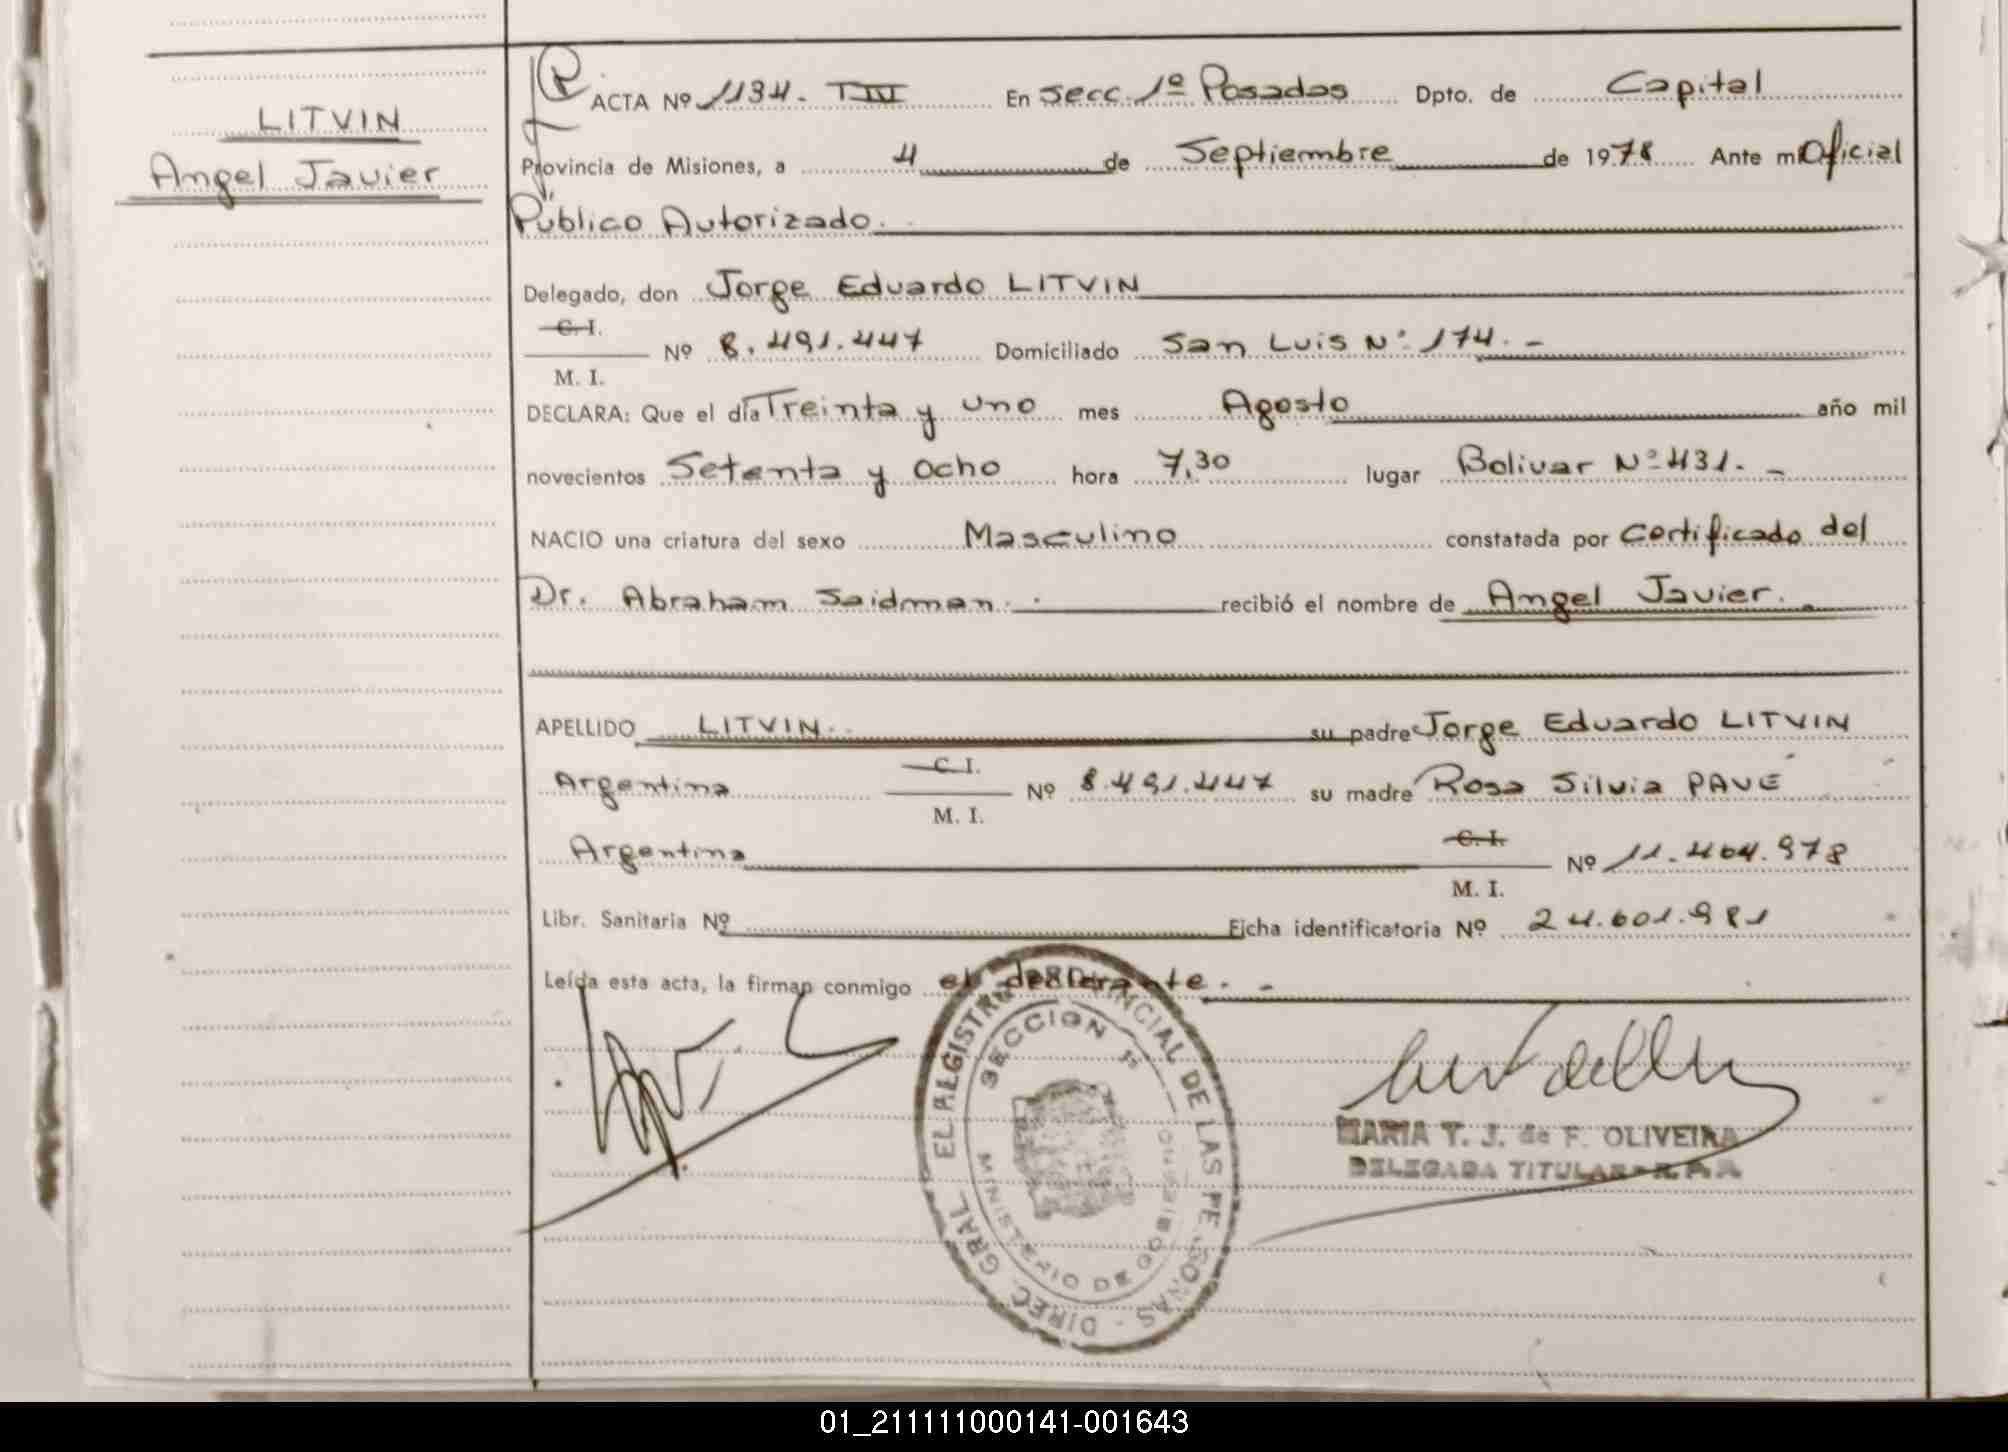 LITVIN
Angel Javier
ACTA Nº 1134. TIII En Secc. 1º Posadas Dpto. de Capital
Provincia de Misiones, a 4 de Septiembre de 1978 Ante mi Oficial
Público Autorizado.
Delegado, don Jorge Eduardo LITVIN
C. I.
Nº 8.491.447 Domiciliado San Luis Nº 174. -
M. I.
DECLARA: Que el día Treinta y uno mes Agosto año mil
novecientos Setenta y Ocho hora 7,30 lugar Bolivar Nº 431. -
NACIO una criatura del sexo Masculino constatada por Certificado del
Dr. Abraham Saidman. recibió el nombre de Angel Javier.
APELLIDO LITVIN. su padre Jorge Eduardo LITVIN
Argentina C. I. Nº 8.491.447 su madre Rosa Silvia PAVÉ
M. I.
Argentina C. I. Nº 11.404.978
M. I.
Libr. Sanitaria Nº Ficha identificatoria Nº 24.601.981
Leída esta acta, la firman conmigo el declarante. -
DIREC. GRAL. PROVINCIAL DE LAS PERSONAS
SECCION 1ª
MINISTERIO DE GOBIERNO
MARIA T. J. de F. OLIVEIRA
DELEGADA TITULAR
01_211111000141-001643